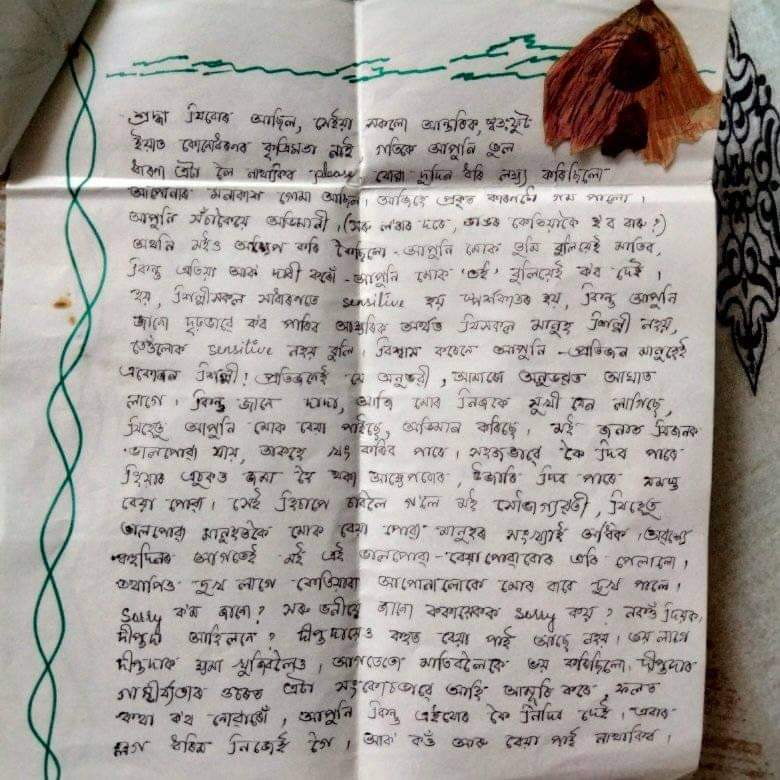 শ্রদ্ধা যিবোৰ আছিল, সেইয়া সকলো আন্তৰিক, স্বতঃস্ফূট
ইয়াত কোনোধৰণৰ কৃত্ৰিমতা নাই গতিকে আপুনি ভুল
ধাৰণা এটা লৈ নাথাকিব please, যোৱা দুদিন ধৰি লক্ষ্য কৰিছিলো
আপোনাৰ মনাকাশ গোমা আছিল। আজিহে প্ৰকৃত কাৰণটো গম পালো।
আপুনি সঁচাকৈয়ে অভিমানী। (সৰু ল'ৰাৰ দৰে, ডাঙৰ কেতিয়াকৈ হ'ব বাৰু?)
অথনি মইও আক্ষেপ কৰি কৈছিলো - আপুনি মোক তুমি বুলিয়েই মাতিব,
কিন্তু এতিয়া আকৌ দাবী কৰোঁ - আপুনি মোক 'তই' বুলিয়েই ক'ব দেই।
হয়, শিল্পীসকল সাধাৰণতে sensitive হয় হয়, কিন্তু আপুনি
জানো দৃঢ়ভাৱে ক'ব পাৰিব অৰ্থাত যিসকল মানুহ শিল্পী নহয়,
তেওঁলোক sensitive নহয় বুলি। বিশ্বাস কৰেনে আপুনি - প্ৰতিজন মানুহেই
একোজন শিল্পী! প্ৰতিজনেই যে অনুভৱী, আমাৰো অনুভৱত আঘাত
লাগে। কিন্তু জানে দাদা, আজি মোৰ নিজকে সুখী যেন লাগিছে,
যিহেতু আপুনি মোক বেয়া পাইছে, অভিমান কৰিছে। মই জনাত যিজনক
ভালপোৱা যায়, তাকহে খং কৰিব পাৰে। সহজভাৱে কৈ দিব পাৰে
হিয়াৰ এচুকত জমা হৈ থকা আক্ষেপবোৰ, উজাৰি দিব পাৰে সমস্ত
বেয়া পোৱা। সেই হিচাপে চাবলৈ গ'লে মই সৌভাগ্যৱতী, যিহেতু
ভালপোৱা মানুহতকৈ মোক বেয়া পোৱা মানুহৰ সংখ্যাই অধিক। অৱশ্যে
বহুদিনৰ আগতেই মই এই ভালপোৱা - বেয়াপোৱাবোৰ এৰি পেলালো।
তথাপিও দুখ লাগে যেতিয়া আপোনালোকে মোৰ বাবে দুখ পালে।
Sorry ক'ম জানো? সৰু ভনীয়ে জানো ককায়েকক sorry কয়? নকওঁ দিয়ক,
দীপ্তদা আহিলনে? দীপ্তদায়েও বহুত বেয়া পাই আছে নহয়। ভয় লাগে
দীপ্তদাক ক্ষমা খুজিবলৈও, আগতেতো মাতিবলৈকে ভয় কৰিছিলো, দীপ্তদাৰ
গাম্ভীৰ্যতাৰ ওচৰত এটা সংকোচভাৱে আহি আমুৱি কৰে, ফলত
কথা ক'ব নোৱাৰোঁ, আপুনি কিন্তু এইবোৰ কৈ নিদিব দেই। এবাৰ
লগ ধৰিম নিজেই গৈ। আকৌ কওঁ আৰু বেয়া পাই নাথাকিব।